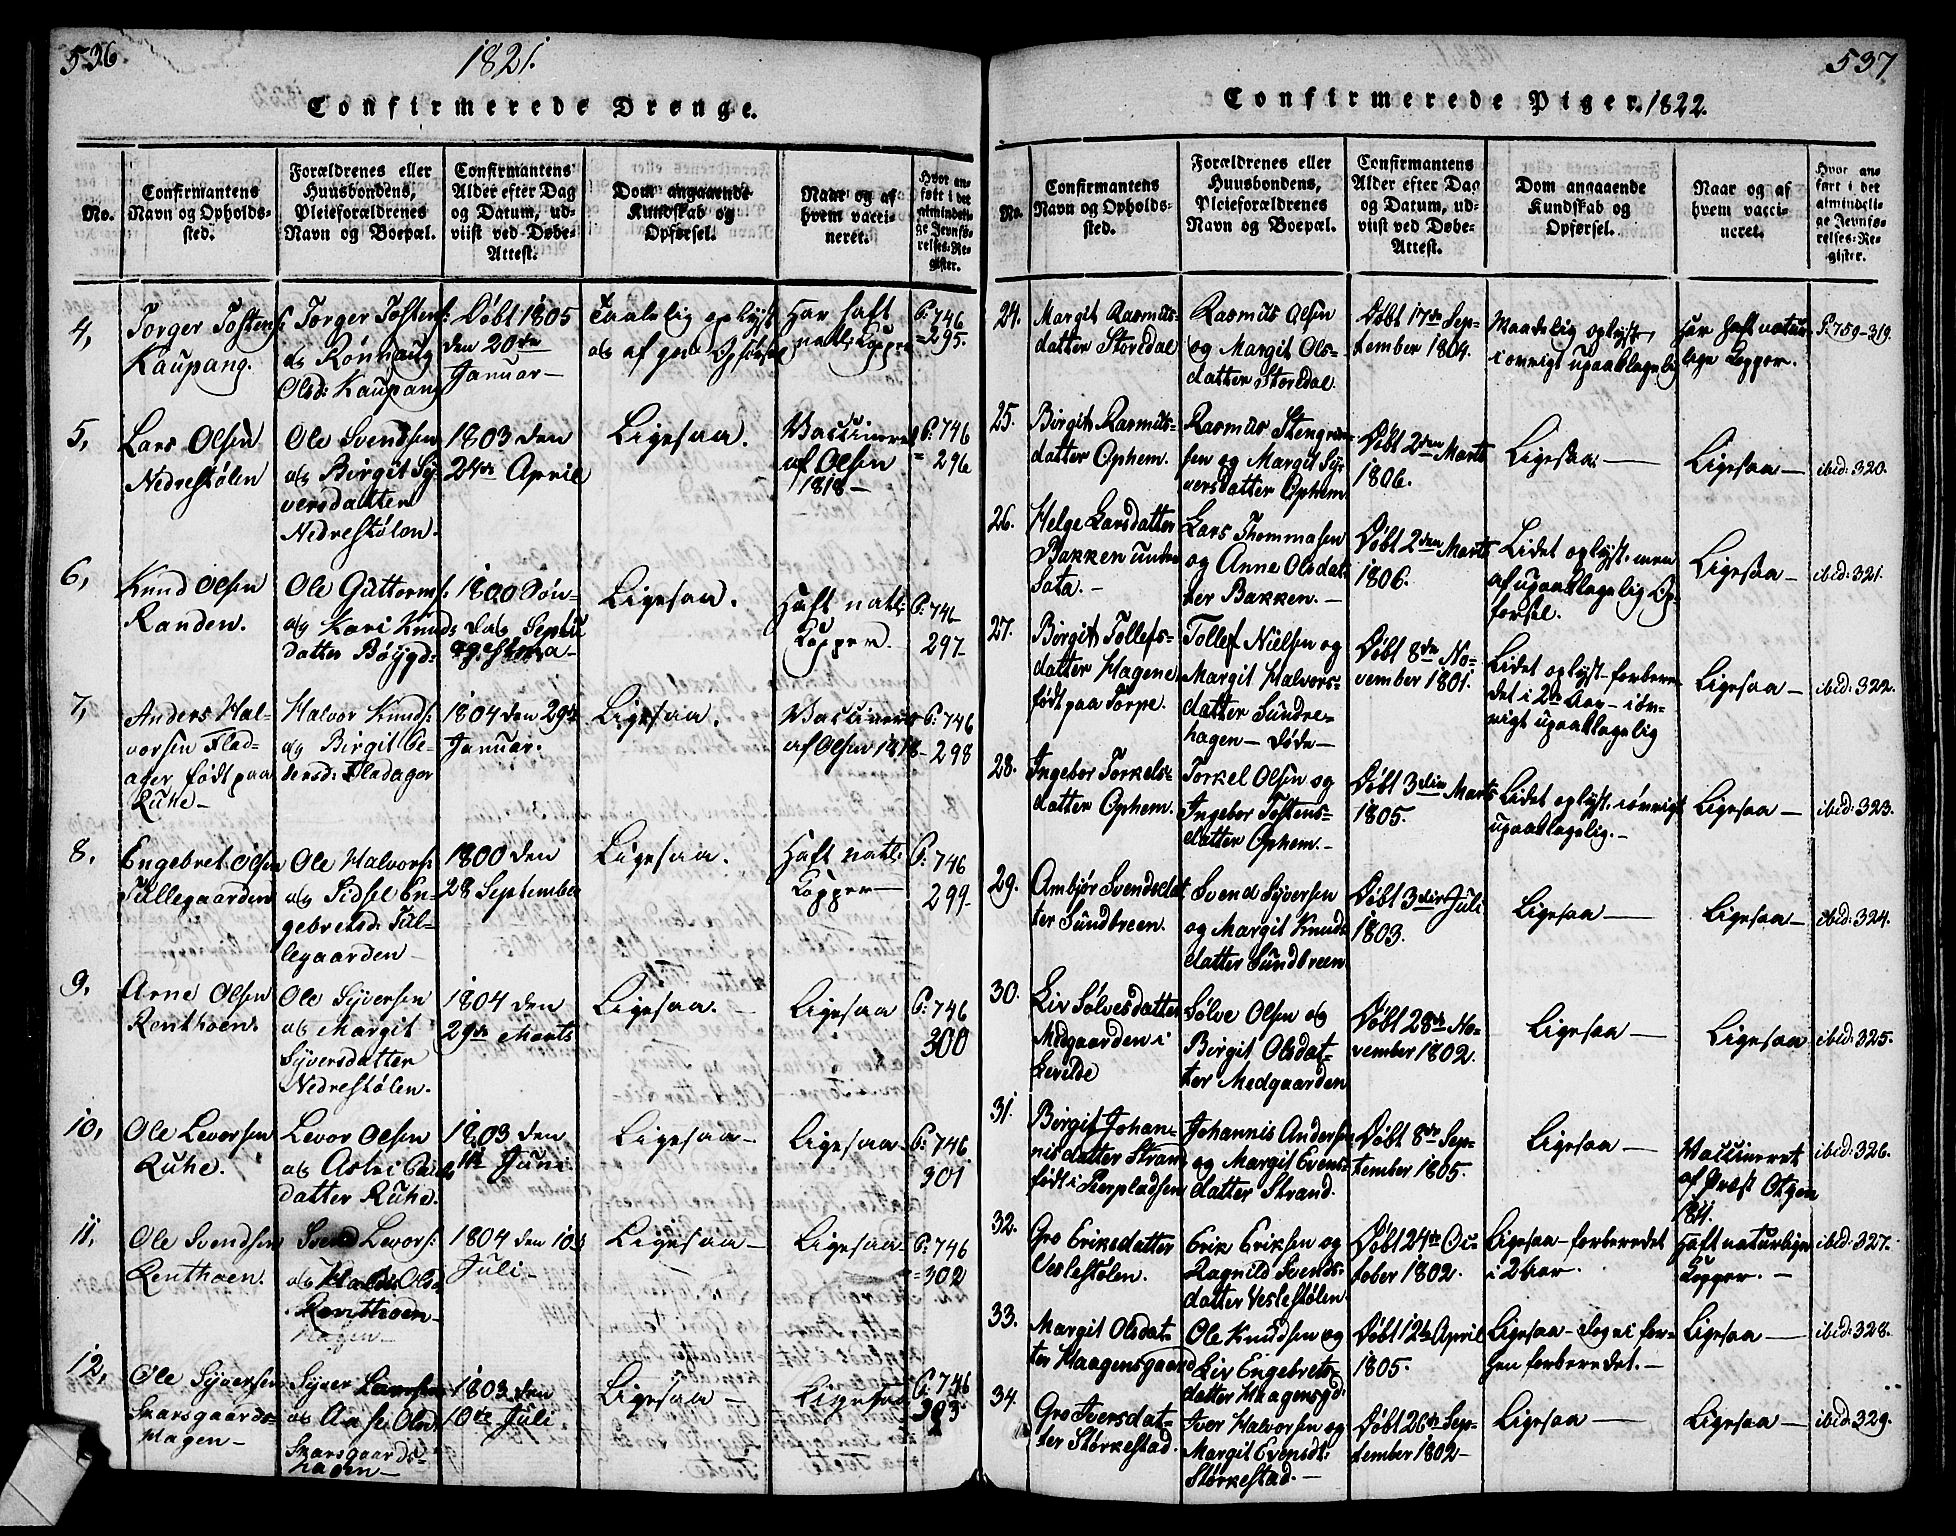 536
1821.
Confirmerede Drenge.
No.
Confirmantens
Navn og Opholds-
sted.
Forældrenes eller
Huusbondens,
Pleieforældrenes
Navn og Boepæl.
Confirmantens
Alder efter Dag
og Datum, ud-
viist ved Døbe-
Attest.
Dom angaaende
Kundskab og
Opførsel.
Naar og af
hvem vacci-
neret.
Hvor an-
ført i det
almindeli-
ge Jevnfø-
relses-Re-
gister.
4,
Torger Tostens:
Kaupang.
Torger Tostens:
og Rønnaug
Olsd: Kaupang
Døbt 1805
den 20de
Januar-
Taalelig oplyst
og af god Opførsel
Har haft
natl: Kopper
P: 746
=295.
5,
Lars Olsen
Nedrestølen
Ole Svendsen
og Birgit Sy-
versdatter
Nedrestølen.
1803 den
24de April
Ligesaa.
Vaccineret
af Olsen
1818-
P: 746
= 296
6,
Knud Olsen
Randen.
Ole Guttorms:
og Kari Knuds
datter Bøygd:
1800 Søn-
dag Septu
agesima-
Ligesaa.
Haft natl:
Kopper.
P: 746
297-
7,
Anders Hal-
vorsen Flad-
ager født paa
Ruhe-
Halvor Knuds:
og Birgit Pe-
dersd: Fladager
1804 den 29de
Januar.
Ligesaa.
Vaccineret
af Olsen 1818-
P: 746
298
8,
Engebret Olsen
Tullegaarden
Ole Halvors:
og Sidsel En-
gebretsd: Tul-
legaarden-
1800 den
28 September
Ligesaa.
Haft natl:
Kopper-
P: 746
299-
9,
Arne Olsen
Renthoen.
Ole Syversen
og Margit
Syversdatter
Nedrestølen.
1804 den
29de Marts
Ligesaa.
Ligesaa
P: 746
300
10,
Ole Levorsen
Ruhe.
Levor Olsen
og Astri
datter Ruhe.
1803 den
Juni
Ligesaa-
Ligesaa-
P: 746
301
11,
Ole Svendsen
Renthoen.
Svend Levors:
og Olsd.
Renthoen-
1804 den 10de
Juli-
Ligesaa-
Ligesaa-
P: 746
=302
12,
Ole Syversen
Skarsgaards-
Hagen-
Syver Larsen
og Aase Olsd:
Skarsgaards-
hagen-
1803 den
10de Juli.
Ligesaa-
Ligesaa
P: 746
303
537
Confirmerede Piger. 1822.
No.
Confirmantens
Navn og Opholds-
sted.
Forældrenes eller
Huusbondens,
Pleieforældrenes
Navn og Boepæl.
Confirmantens
Alder efter Dag
og Datum, ud-
viist ved Døbe-
Attest.
Dom angaaende
Kundskab og
Opførsel.
Naar og af
hvem vacci-
neret.
Hvor an-
ført i det
almindeli-
ge Jevnfø-
relses-Re-
gister.
24.
Margit Rasmus-
datter Storedal
Rasmus Olsen
og Margit Ols-
datter Storedal.
Døbt 17de Sep-
tember 1804.
Maadelig oplyst,
i øvrigt upaaklagelig
Har haft natur-
lige Kopper.
P: 750-319.
25.
Birgit Rasmus-
datter Ophem.
Rasmus Stengrim-
sen og Margit Sy-
versdatter Ophem
Døbt 2den Marts
1806.
Ligesaa-
Ligesaa-
ibid: 320.
26.
Helge Larsdatter
Bakken under
Sata.-
Lars Thommasen
og Anne Olsdat-
ter Bakken.-
Døbt 2den Marts
1806.
Lidet oplyst. men
af upaaklagelig Op-
førsel.
Ligesaa-
ibid: 321.
27.
Birgit Tollefs-
datter Hagene
født paa Torpe.
Tollef Nielsen og
Margit Halvors-
datter Sundre-
hagen- døde-
Døbt 8de No-
vember 1801.
Lidet oplyst- forbere
det i 2de Aar- i øv-
rigt upaaklagelig
Ligesaa-
ibid: 322.
28.
Ingebor Torkels-
datter Ophem.
Torkel Olsen og
Ingebor Tostens-
datter Ophem.-
Døbt 3die Marts
1805.
Lidet oplyst. i øvrigt
upaaklagelig.-
Ligesaa-
ibid: 323.
29.
Ambjør Svendsdat
ter Sundbreen.
Svend Syversen
og Margit Knuds
datter Sundbreen
Døbt 3die Juli
1803.
Ligesaa-
Ligesaa-
ibid: 324.
30.
Liv Sølvesdatter
Medgaarden i
Leveldе
Sølve Olsen og
Birgit Olsdat-
ter Medgaarden
Døbt 28de No-
vember 1802.
Ligesaa-
Ligesaa
ibid: 325.
31.
Birgit Johan-
nisdatter Strand
født i Pierpladsen
Johannis Andersen
og Margit Evens-
datter Strand.
Døbt 8de Sep-
tember 1805.
Ligesaa-
Vaccineret
af Præst
ibid: 326.
32.
Gro Eriksdatter
Veslestølen.
Erik Eriksen og
Ragnild Svends-
datter Veslestølen.
Døbt 24de Oc-
tober 1802.
Ligesaa- forberedet
i 2 Aar.
Haft naturlige
Kopper.-
ibid: 327.
33.
Margit Olsdat-
ter Haagensgaard
Ole Knudsen og
Liv Engebrets-
datter Haagensgd:
Døbt 12te April
1805.
Ligesaa- dog
forberedet.-
Ligesaa-
ibid: 328.
34.
Gro Iversdat-
ter Størkestad.
Iver Halvorsen og
Margit Evensdt:
Størkestad.-
Døbt 26de Sep-
tember 1802-
Ligesaa-
Ligesaa-
ibid: 329.